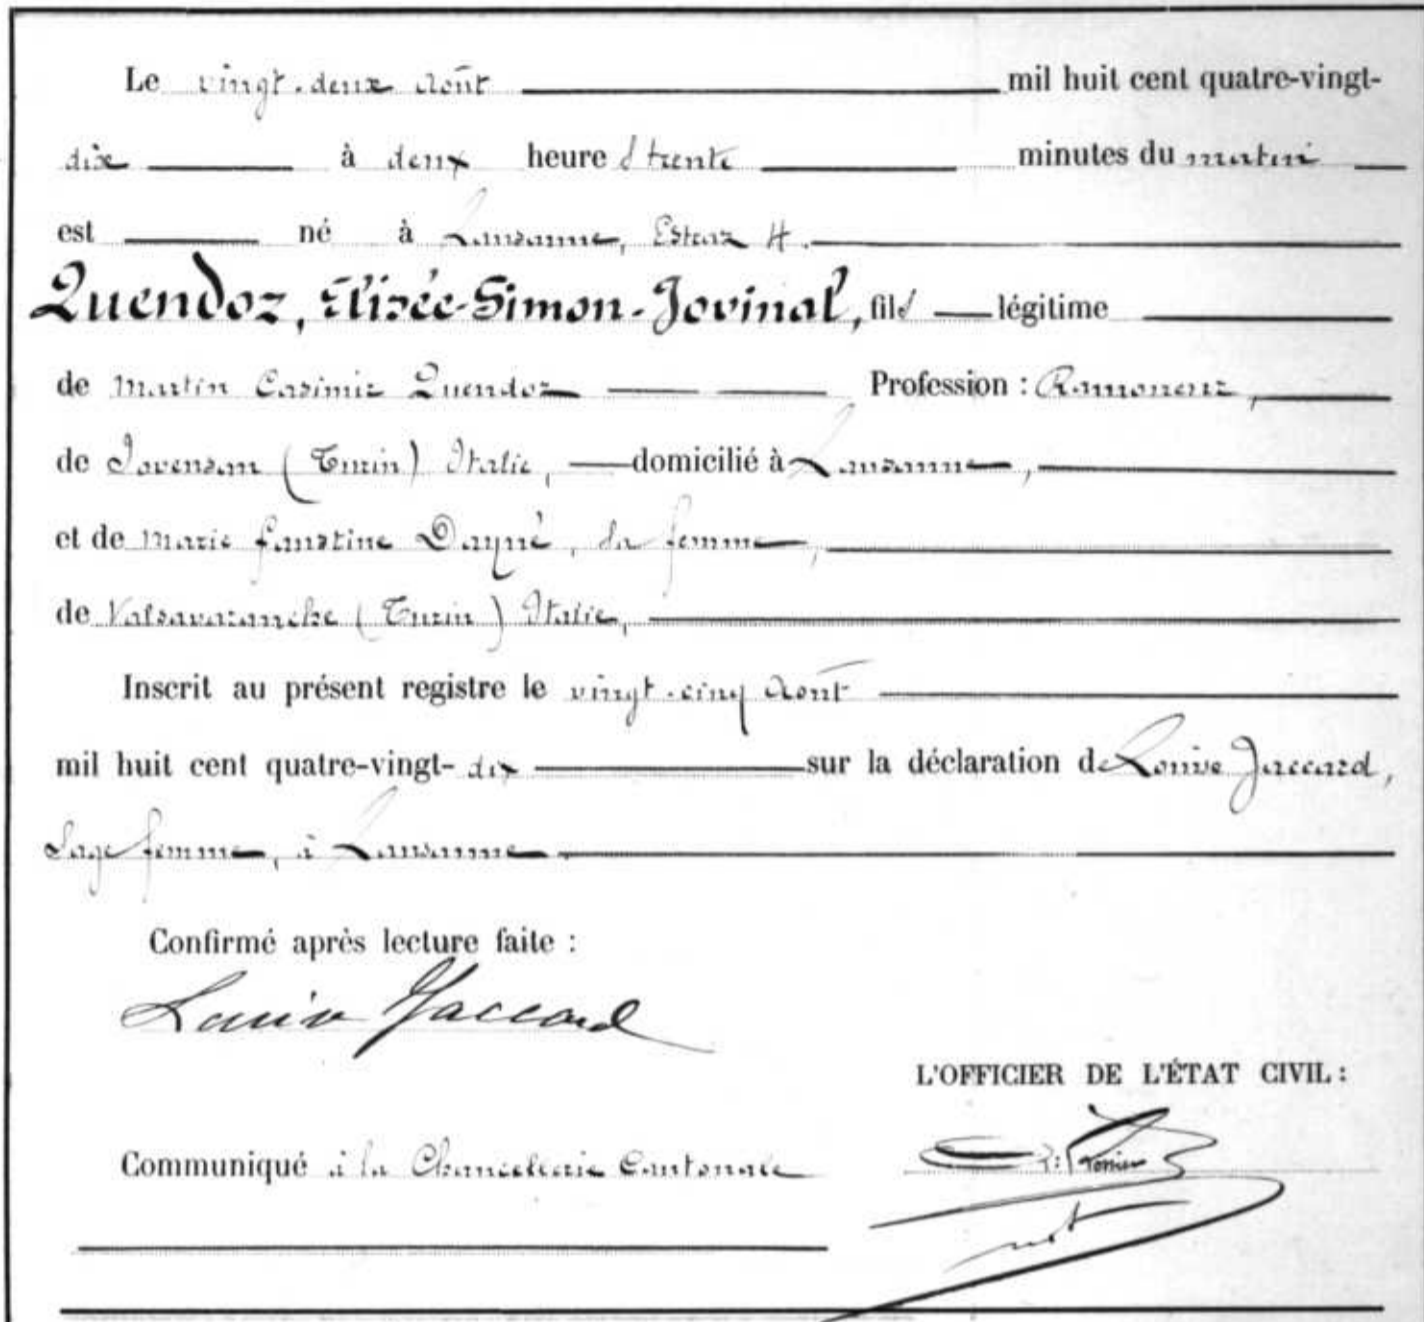 Le vingt-deux Août mil huit cent quatre-vingt-
dix à deux heure & trente minutes du matin
est né à Lausanne, Estraz 4.
Quendoz, Elisée-Simon-Jovinal, fils légitime
de Martin Casimir Quendoz Profession : Ramoneur,
de Jovensan (Turin) Italie, domicilié à Lausanne,
et de Marie Faustine Dayné, sa femme,
de Valsavaranche (Turin) Italie,
Inscrit au présent registre le vingt-cinq Août
mil huit cent quatre-vingt- dix sur la déclaration de Louise Jaccard,
Sage femme, à Lausanne.
Confirmé après lecture faite :
Louise Jaccard
L'OFFICIER DE L'ÉTAT CIVIL :
Communiqué à la Chancellerie Cantonale